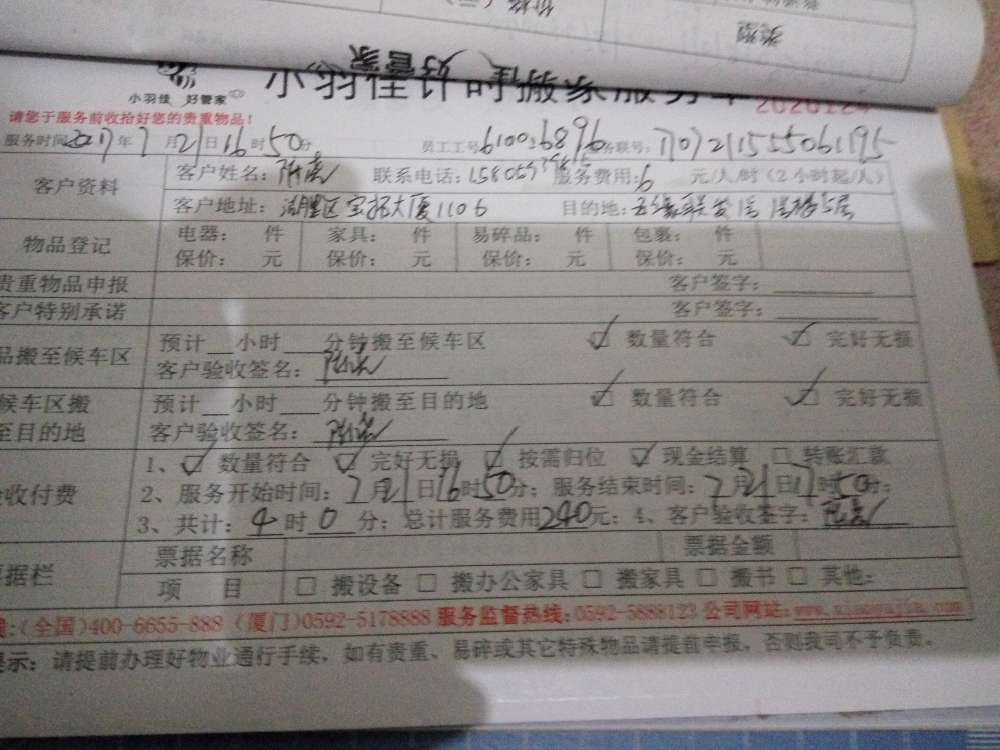 类型
价格(元)
小羽佳 好管家
小羽佳计时搬家服务单
请您于服务前收拾好您的贵重物品!
服务时间2017年7月21日16时50分 员工工号610036896 务联号:170721155506195
客户资料 客户姓名: 联系电话: 服务费用:6 元/人/时(2小时起/人)
客户地址:湖里区宝拓大厦1106 目的地:
物品登记 电器: 件 家具: 件 易碎品: 件 包裹: 件
保价: 元 保价: 元 保价: 元 保价: 元
贵重物品申报 客户签字:
客户特别承诺 客户签字:
品搬至候车区 预计 小时 分钟搬至候车区 ☑ 数量符合 ☑ 完好无损
客户验收签名:
候车区搬 预计 小时 分钟搬至目的地 ☑ 数量符合 ☑ 完好无损
至目的地 客户验收签名:
1、☑ 数量符合 ☑ 完好无损 ☑ 按需归位 ☑ 现金结算 □ 转账汇款
验收付费 2、服务开始时间:7月21日16时50分;服务结束时间:7月21日17时50分;
3、共计:4时0分;总计服务费用240元;4、客户验收签字:
票据栏 票据名称 票据金额
项 目 □ 搬设备 □ 搬办公家具 □ 搬家具 □ 搬书 □ 其他:
:(全国)400-6655-888 (厦门)0592-5178888 服务监督热线:0592-5888123 公司网址:www.xiaoyujia.com
提示:请提前办理好物业通行手续,如有贵重、易碎或其它特殊物品请提前申报,否则我司不予负责。